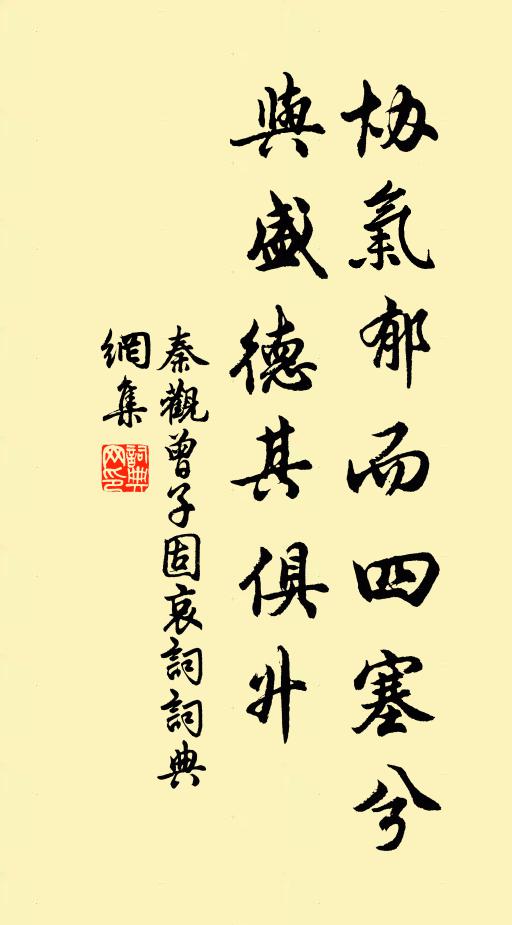 協氣郁而四塞兮
與盛德其俱升
秦觀曾子固哀詞詞典
網集
詞典
网印